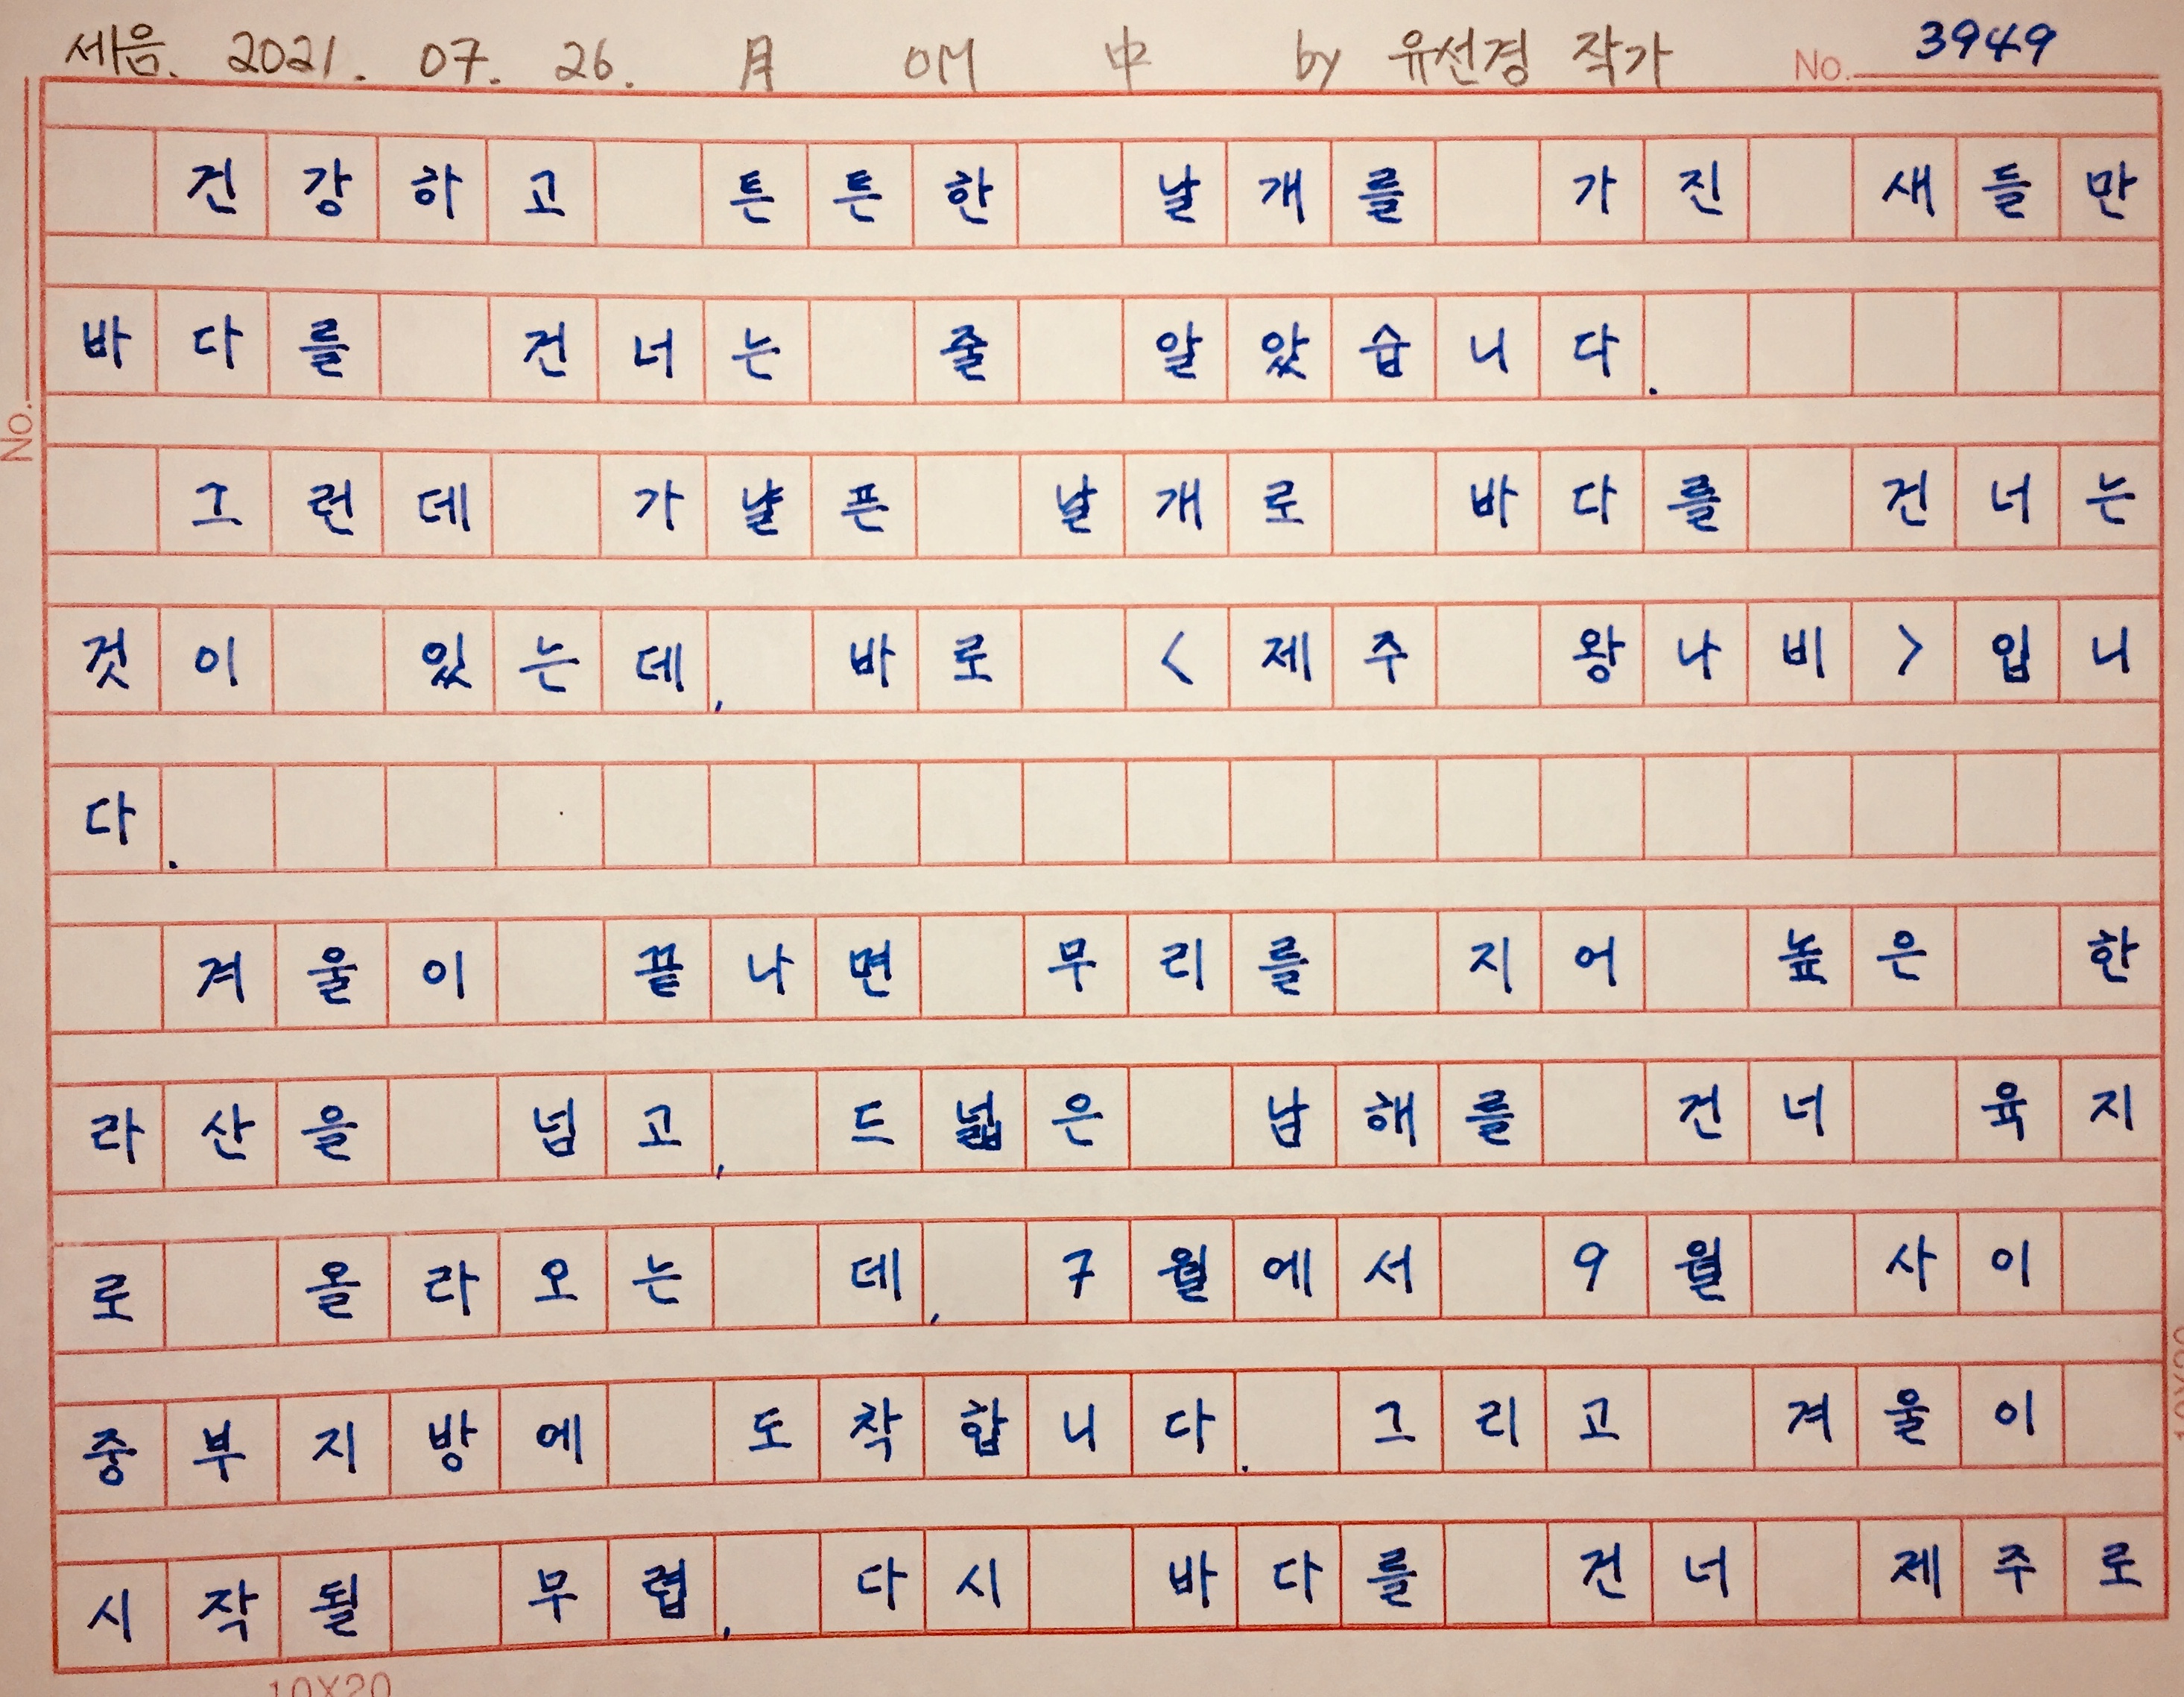 세음. 2021. 07. 26. 月 OM 中 by 유선경 작가 No. 3949
건강하고 튼튼한 날개를 가진 새들만
바다를 건너는 줄 알았습니다.
No.
그런데 가냘픈 날개로 바다를 건너는
것이 있는데, 바로 <제주 왕나비>입니
다.
겨울이 끝나면 무리를 지어 높은 한
라산을 넘고, 드넓은 남해를 건너 육지
로 올라오는 데, 7월에서 9월 사이
중부지방에 도착합니다. 그리고 겨울이
시작될 무렵, 다시 바다를 건너 제주로
10X20